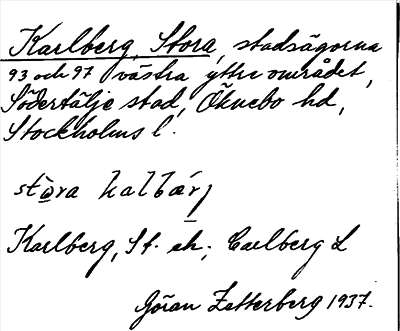 Karlberg, Stora, stadsägorna
93 och 97 västra yttre området,
Södertälje stad, Öknebo hd,
Stockholms l.
stòra kalbærj
Karlberg, St. ek; Carlberg L
Göran Zetterberg 1937.